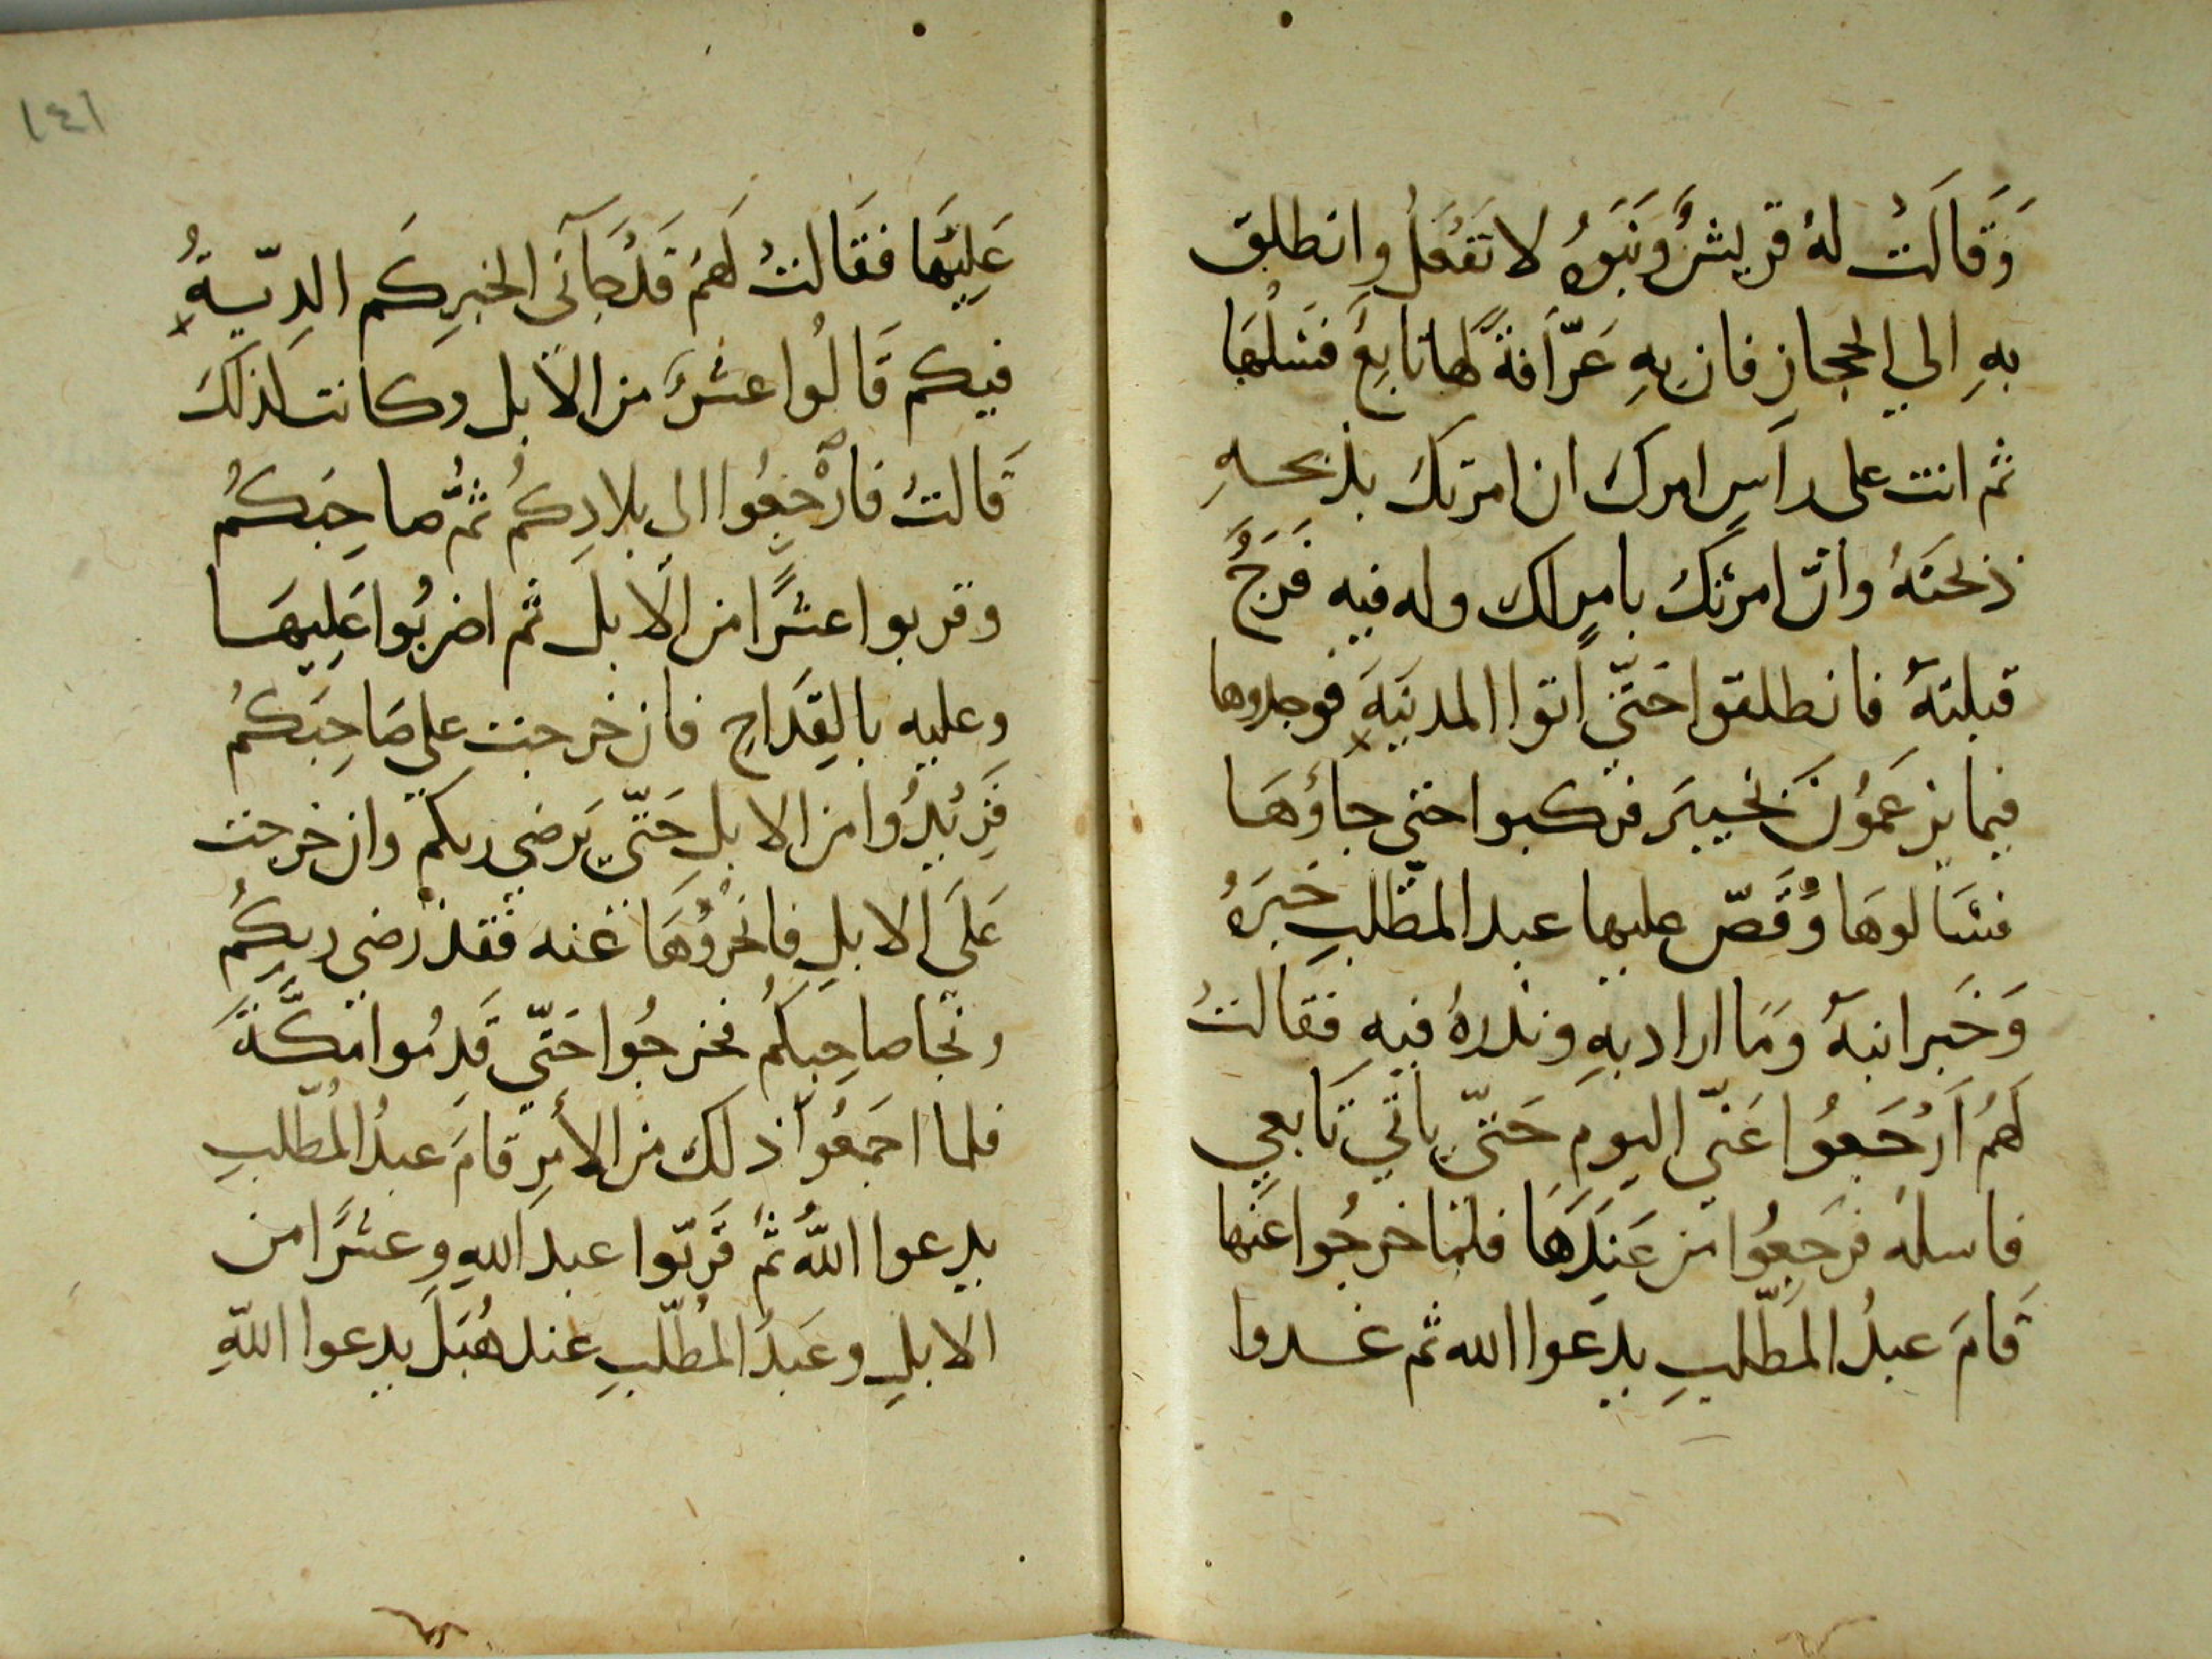 وَقَالَتْ لهُ قريشٌ وَبَنوهُ لا تَفْعَلُ وانطلق
بهِ الي الحجازِ فان بهِ عَرّافَةً لها تابِعٌ فَسَلْهَا
ثم انت على راسِ امرك ان امرتك بذبحهِ
ذبحتهُ وانّ امرتكَ بامرٍ لك وله فيه فَرَجٌ
قبلتهُ فانطلقوا حَتّي اتوا المدينَةَ فوجدوها
فيما يزعَمُونَ بخَيبَر فركبوا حتي جاؤهَا
فسَالوهَا وَقَصّ عليها عبد المطّلبِ خَبَرَهُ
وَخَبر ابنهُ وَمَا اراد بهِ ونذرهُ فيهِ فقالتْ
لَهُمْ اَرْجَعُوا عَنّي اليوم حَتّي ياتي تَابعي
فاسلهُ فرَجعُوا من عَندَهَا فلمّا خرجُوا عَنها
قامَ عبدُ المطّلبِ يدعوا الله ثم غدوا
١٤١
عَليهَا فقَالتْ لَهُم قَدْ جآَنى الخبر كَم الدِيّةُ
فيكم قَالُوا عشرٌ من الابل وكانت كذلكَ
قَالتْ فارْجِعُوا الى بلادِكُم ثمَّ صاحِبَكُم
وقربوا عشرًا من الابل ثم اضربُوا عَليهَا
وعليهِ بالقِدَاحِ فان خرجت علي صَاحِبَكُم
فَزِيدُوا من الابلِ حَتّي يَرضي ربكم وان خرجت
عَلَي الابلِ فانحَرُوهَا عَنه فقدْ رضي ربكُم
ونجا صاحِبكُم فخرجُوا حَتّي قَدِمُوا مَكَّةَ
فلما اجمَعُوا ذلك من الأمرِ قامَ عبدُ المُطّلبِ
يدعوا اللهَ ثمّ قَربّوا عبد اللهِ وعشرًا من
الابلِ وعَبدُ المُطّلبِ عند هُبَلَ يدعوا اللهِ